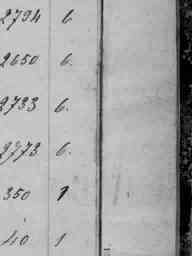 2794 6
2650 6.
2733 6.
2773 6.
350 1
40 1